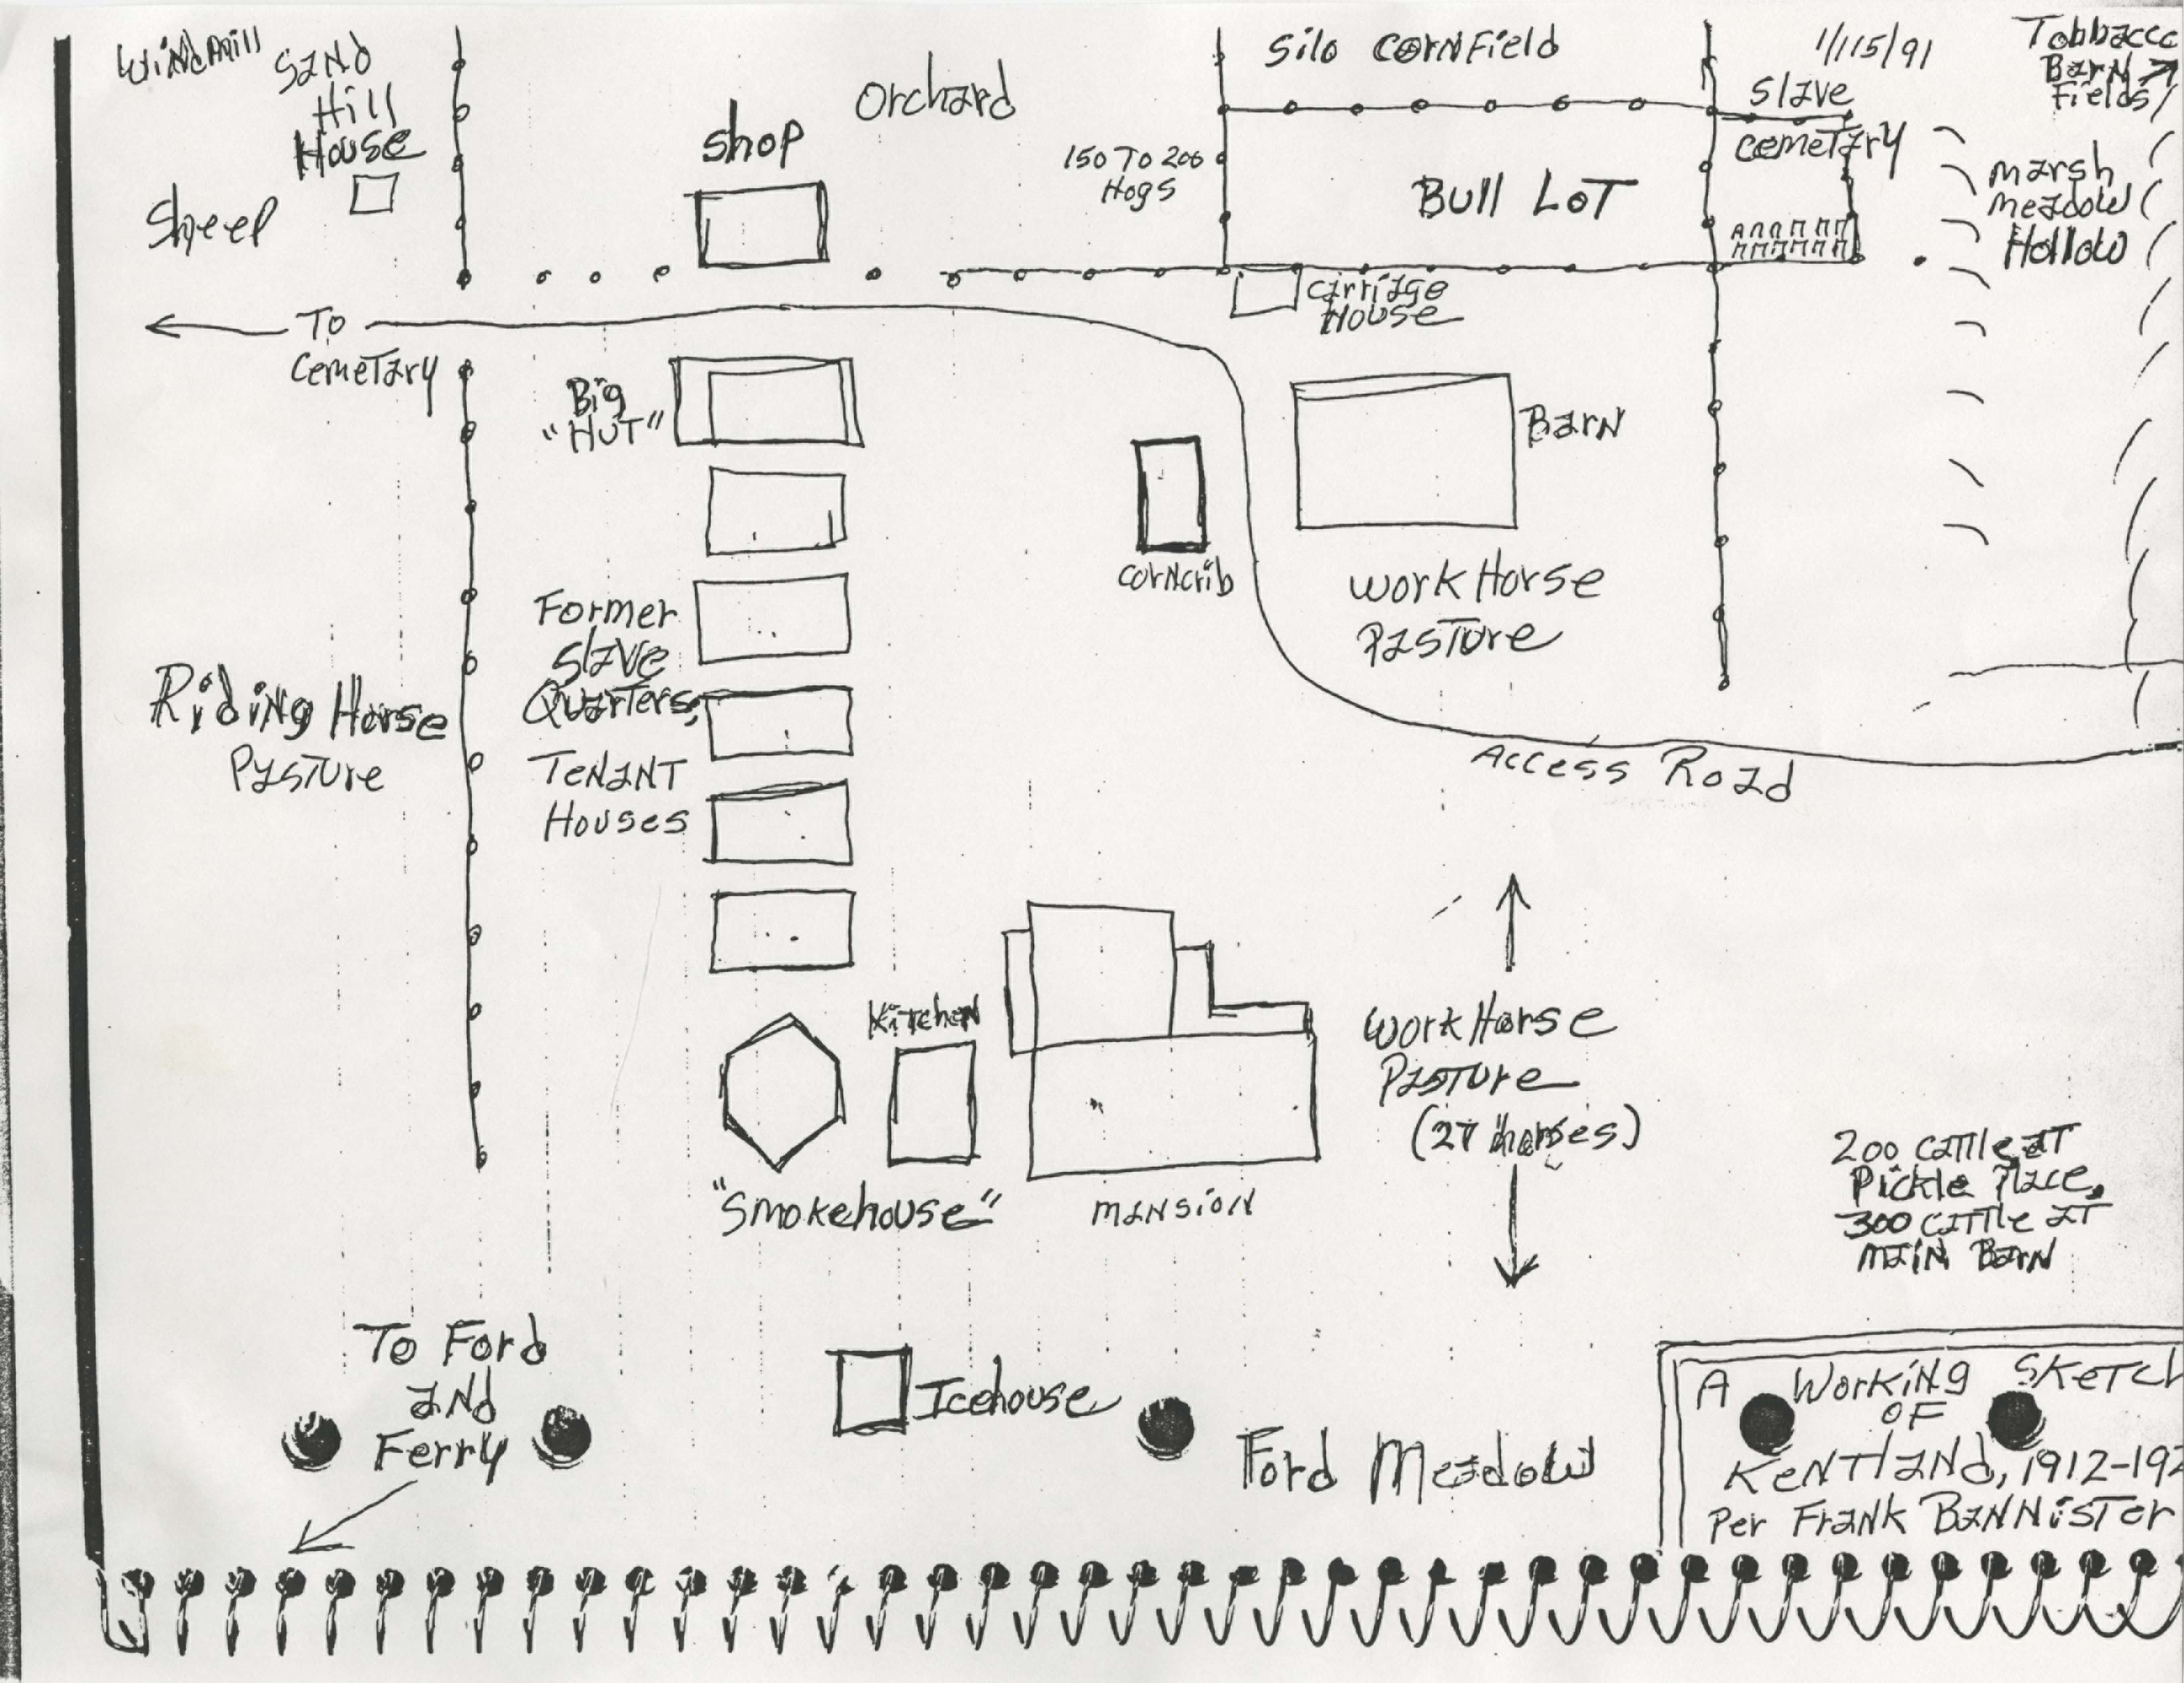 Windmill
Sand
Hill
House
Sheep
shop
Orchard
Silo Cornfield
150 To 200
Hogs
Bull Lot
1/115/91
Slave
Cemetary
Tobbacco
Barn
Fields
Marsh
Meadow
Hollow
Carriage
House
To
Cemetary
Big
"Hut"
Barn
Corncrib
Work Horse
Pasture
Former
Slave
Quarters,
Tenant
Houses
Riding Horse
Pasture
Access Road
Kitchen
"Smokehouse"
Mansion
Work Horse
Pasture
(27 horses)
200 Cattle at
Pickle Place,
300 Cattle at
Main Barn
To Ford
and
Ferry
Icehouse
Ford Meadow
A Working Sketch
of
Kentland, 1912-192
Per Frank Bannister